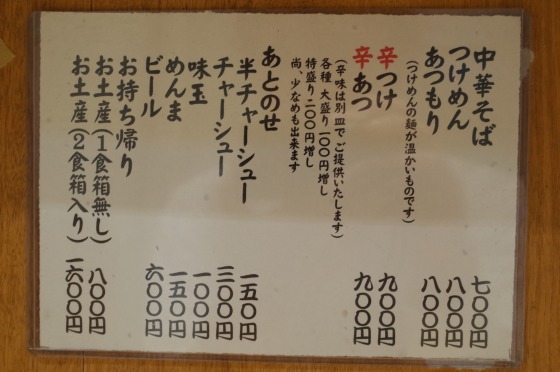 中華そば 七〇〇円
つけめん 八〇〇円
あつもり 八〇〇円
(つけめんの麺が温かいものです)
辛つけ 九〇〇円
辛あつ 九〇〇円
(辛味は別皿でご提供いたします)
各種 大盛り一〇〇円増し
特盛り二〇〇円増し
尚、少なめも出来ます
あとのせ
半チャーシュー 一五〇円
チャーシュー 三〇〇円
味玉 一〇〇円
めんま 一五〇円
ビール 六〇〇円
お持ち帰り
お土産(1食箱無し) 八〇〇円
お土産(2食箱入り) 一六〇〇円